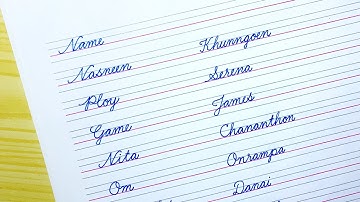 Name Khunngoen
Nasneen Serena
Ploy James
Game Chananthon
Nita Onrampa
Om Danai